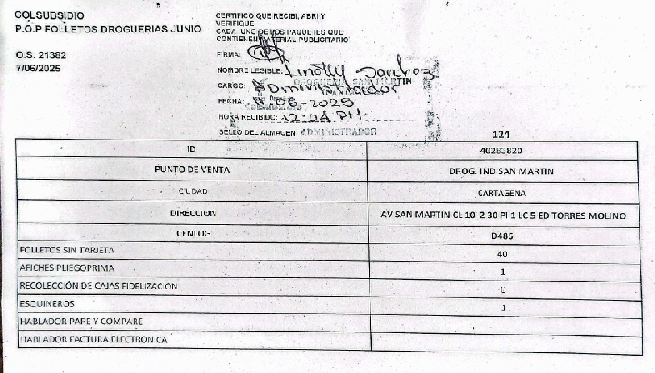 COLSUBSIDIO
P.O.P FOLLETOS DROGUERIAS JUNIO
O.S. 21382
7/06/2025
CERTIFICO QUE RECIBI, ABRI Y
VERIFIQUE
CADA UNO DE LOS PAQUETES QUE
CONTIENE MATERIAL PUBLICITARIO
FIRMA:
NOMBRE LEGIBLE:
CARGO: Administrador
DROGUERIA SAN MARTIN
FECHA: 06-2025
HORA RECIBIDO:
SELLO DEL ALMACEN ADMINISTRADOR
121
ID 40281820
PUNTO DE VENTA DROG. IND SAN MARTIN
CIUDAD CARTAGENA
DIRECCION AV SAN MARTIN CL 10 2 30 PI 1 LC 5 ED TORRES MOLINO
CENTRO D485
FOLLETOS SIN TARJETA 40
AFICHES PLIEGOPRIMA 1
RECOLECCIÓN DE CAJAS FIDELIZACION
ESQUINEROS 1
HABLADOR PAPE Y COMPARE
HABLADOR FACTURA ELECTRONICA